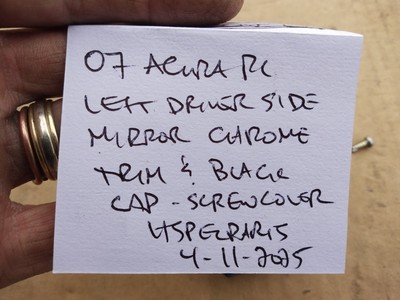 07 ACURA RL
LEFT DRIVER SIDE
MIRROR CHROME
TRIM & BLACK
CAP - SCREWCOVER
HSPECPARTS
4-11-2025